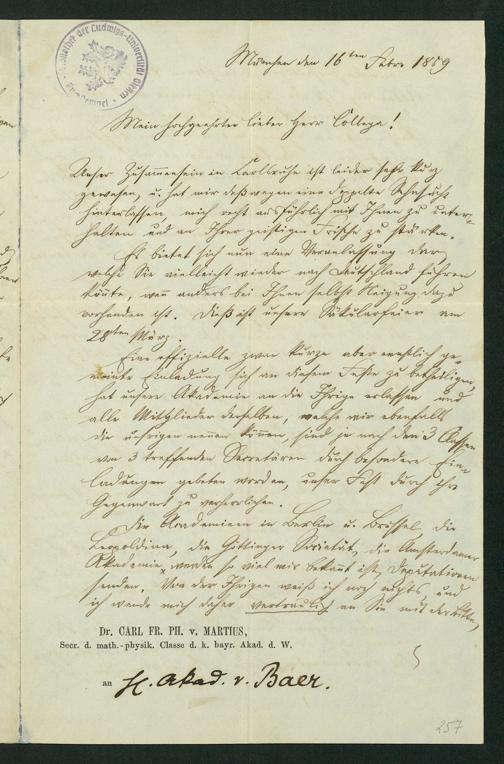 Bibliothek der Ludwigs-Universität Gießen
München den 16ten Febr. 1859
Mein hochgeehrter lieber Herr College!
Unser Zusammensein in Carlsruhe ist leider sehr kurz
gewesen, u. hat mir deßwegen eine doppelte Sehnsucht
hinterlassen, mich recht ausführlich mit Ihnen zu unter-
halten und an Ihrer geistigen Frische zu stärken.
Es bietet sich nun eine Veranlassung dar,
welche Sie vielleicht wieder nach Deutschland führen
könte, wen anders bei Ihnen selbst Neigung dazu
vorhanden ist. Dieß ist unsere Säkularfeier am
28ten März.
Eine offizielle zwar kurze aber ge-
meinte Einladung sich an diesem Feste zu betheiligen,
hat unsere Akademie an die Ihrige erlassen, und
alle Mitglieder derselben, welche wir ebenfalls
die unsrigen nennen können, sind je nach den 3 Classen
von 3 treffenden Secretären durch besondere Ein-
ladungen gebeten worden, unser Fest durch ihre
Gegenwart zu verherrlichen.
Die Academieen in Berlin u. Brüssel, die
Leopoldina, die Göttinger Societät, die Amsterdamer
Akademie werden so viel mir bekant ist, Deputationen
senden. Von der Ihrigen weiß ich noch nichts, und
ich wende mich daher vertraulich an Sie mit der Bitte,
Dr. CARL FR. PH. v. MARTIUS,
Secr. d. math.-physik. Classe d. k. bayr. Akad. d. W.
an H. Akad. v. Baer.
257